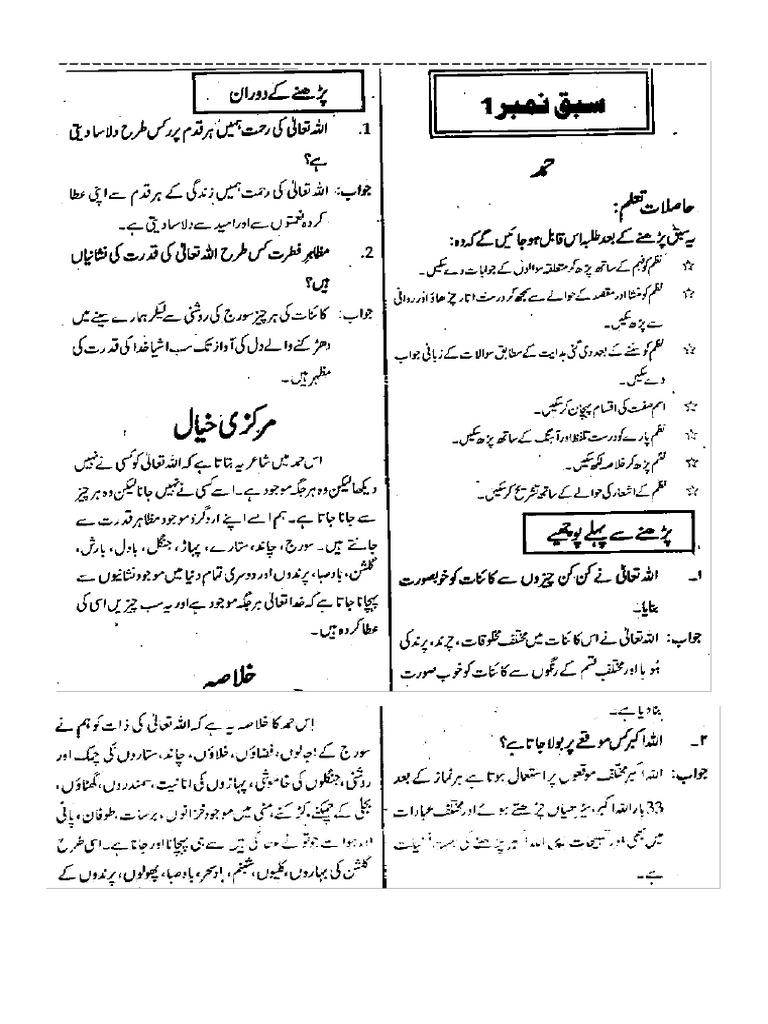 سبق نمبر 1
حمد
حاصلاتِ تعلم:
یہ سبق پڑھنے کے بعد طلبہ اس قابل ہو جائیں گے کہ وہ:
☆ نظم کو فہم کے ساتھ پڑھ کر متعلقہ سوالوں کے جوابات دے سکیں۔
☆ نظم کو منشا اور مقصد کے حوالے سے سمجھ کر درست اتار چڑھاؤ اور روانی
سے پڑھ سکیں۔
☆ نظم کو سننے کے بعد دی گئی ہدایت کے مطابق سوالات کے زبانی جواب
دے سکیں۔
☆ اسم صفت کی اقسام پہچان کر سکیں۔
☆ نظم پارے کو درست تلفظ اور آہنگ کے ساتھ پڑھ سکیں۔
☆ نظم پڑھ کر خلاصہ لکھ سکیں۔
☆ نظم کے اشعار کی حوالے کے ساتھ تشریح کر سکیں۔
پڑھنے سے پہلے پوچھیے
۱۔ اللہ تعالیٰ نے کن کن چیزوں سے کائنات کو خوبصورت
بنایا۔
جواب: اللہ تعالیٰ نے اس کائنات میں مختلف مخلوقات، چرند، پرند کی
اور مختلف قسم کے رنگوں سے کائنات کو خوب صورت
بنا دیا ہے۔
۲۔ اللہ اکبر کس موقعے پر بولا جاتا ہے؟
جواب: اللہ اکبر مختلف موقعوں پر استعمال ہوتا ہے ہر نماز کے بعد
33 بار اللہ اکبر، سیڑھیاں چڑھتے ہوئے اور مختلف عبادات
میں بھی اور تسبیحات میں اللہ اکبر پڑھنے کی
ہے۔
پڑھنے کے دوران
1. اللہ تعالیٰ کی رحمت ہمیں ہر قدم پر کس طرح دلاسا دیتی
ہے؟
جواب: اللہ تعالیٰ کی رحمت ہمیں زندگی کے ہر قدم سے اپنی عطا
کردہ نعمتوں سے اور امید سے دلاسا دیتی ہے۔
2. مظاہرِ فطرت کس طرح اللہ تعالیٰ کی قدرت کی نشانیاں
ہیں؟
جواب: کائنات کی ہر چیز سورج کی روشنی سے لیکر ہمارے سینے میں
دھڑکنے والے دل کی آواز تک سب اشیا خدا کی قدرت کی
مظہر ہیں۔
مرکزی خیال
اس حمد میں شاعر یہ بتاتا ہے کہ اللہ تعالیٰ کو کسی نے نہیں
دیکھا لیکن وہ ہر جگہ موجود ہے۔ اسے کسی نے نہیں جانا لیکن وہ ہر چیز
سے جانا جاتا ہے۔ ہم اسے اپنے ارد گرد موجود مظاہر قدرت سے
جانتے ہیں۔ سورج، چاند، ستارے، پہاڑ، جنگل، بادل، بارش،
گلشن، باد صبا، پرندوں اور دوسری تمام دنیا میں موجود نشانیوں سے
پہچانا جاتا ہے کہ خدا تعالیٰ ہر جگہ موجود ہے اور یہ سب چیزیں اسی کی
عطا کردہ ہیں۔
خلاصہ
اِس حمد کا خلاصہ یہ ہے کہ اللہ تعالیٰ کی ذات کو ہم نے
سورج کے اجالوں، فضاؤں، خلاؤں، چاند، ستاروں کی چمک اور
روشنی، جنگلوں کی خاموشی، پہاڑوں کی انانیت، سمندروں، گھٹاؤں،
بجلی کے چمکنے، کڑکنے، مٹی میں موجود خزانوں، برسات، طوفان، پانی
اور ہوا سے ہی پہچانا اور جانا ہے۔ اسی طرح
گلشن کی بہاروں، کلیوں، شبنم، بادِ صبا، پھولوں، پرندوں کے